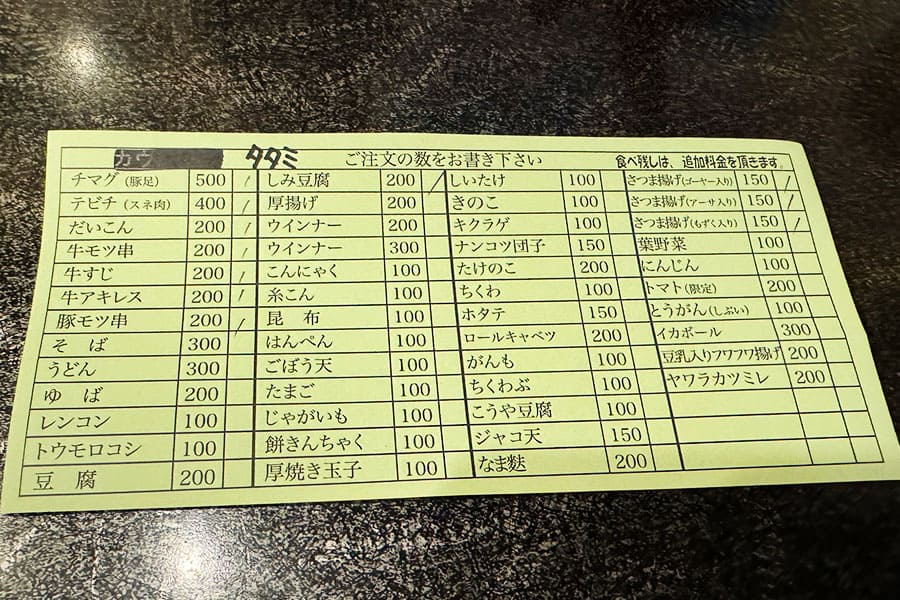 カウ タタミ ご注文の数をお書き下さい 食べ残しは、追加料金を頂きます。
チマグ(豚足) 500 /
テビチ(スネ肉) 400 /
だいこん 200 /
牛モツ串 200 /
牛すじ 200 /
牛アキレス 200 /
豚モツ串 200 /
そば 300
うどん 300
ゆば 200
レンコン 100
トウモロコシ 100
豆腐 200
しみ豆腐 200 /
厚揚げ 200
ウインナー 200
ウインナー 300
こんにゃく 100
糸こん 100
昆布 100
はんぺん 100
ごぼう天 100
たまご 100
じゃがいも 100
餅きんちゃく 100
厚焼き玉子 100
しいたけ 100
きのこ 100
キクラゲ 100
ナンコツ団子 150
たけのこ 200
ちくわ 100
ホタテ 150
ロールキャベツ 200
がんも 100
ちくわぶ 100
こうや豆腐 100
ジャコ天 150
なま麩 200
さつま揚げ(ゴーヤー入り) 150 /
さつま揚げ(アーサ入り) 150 /
さつま揚げ(もずく入り) 150 /
葉野菜 100
にんじん 100
トマト(限定) 200
とうがん(しぶい) 100
イカボール 300
豆乳入りフワフワ揚げ 200
ヤワラカツミレ 200